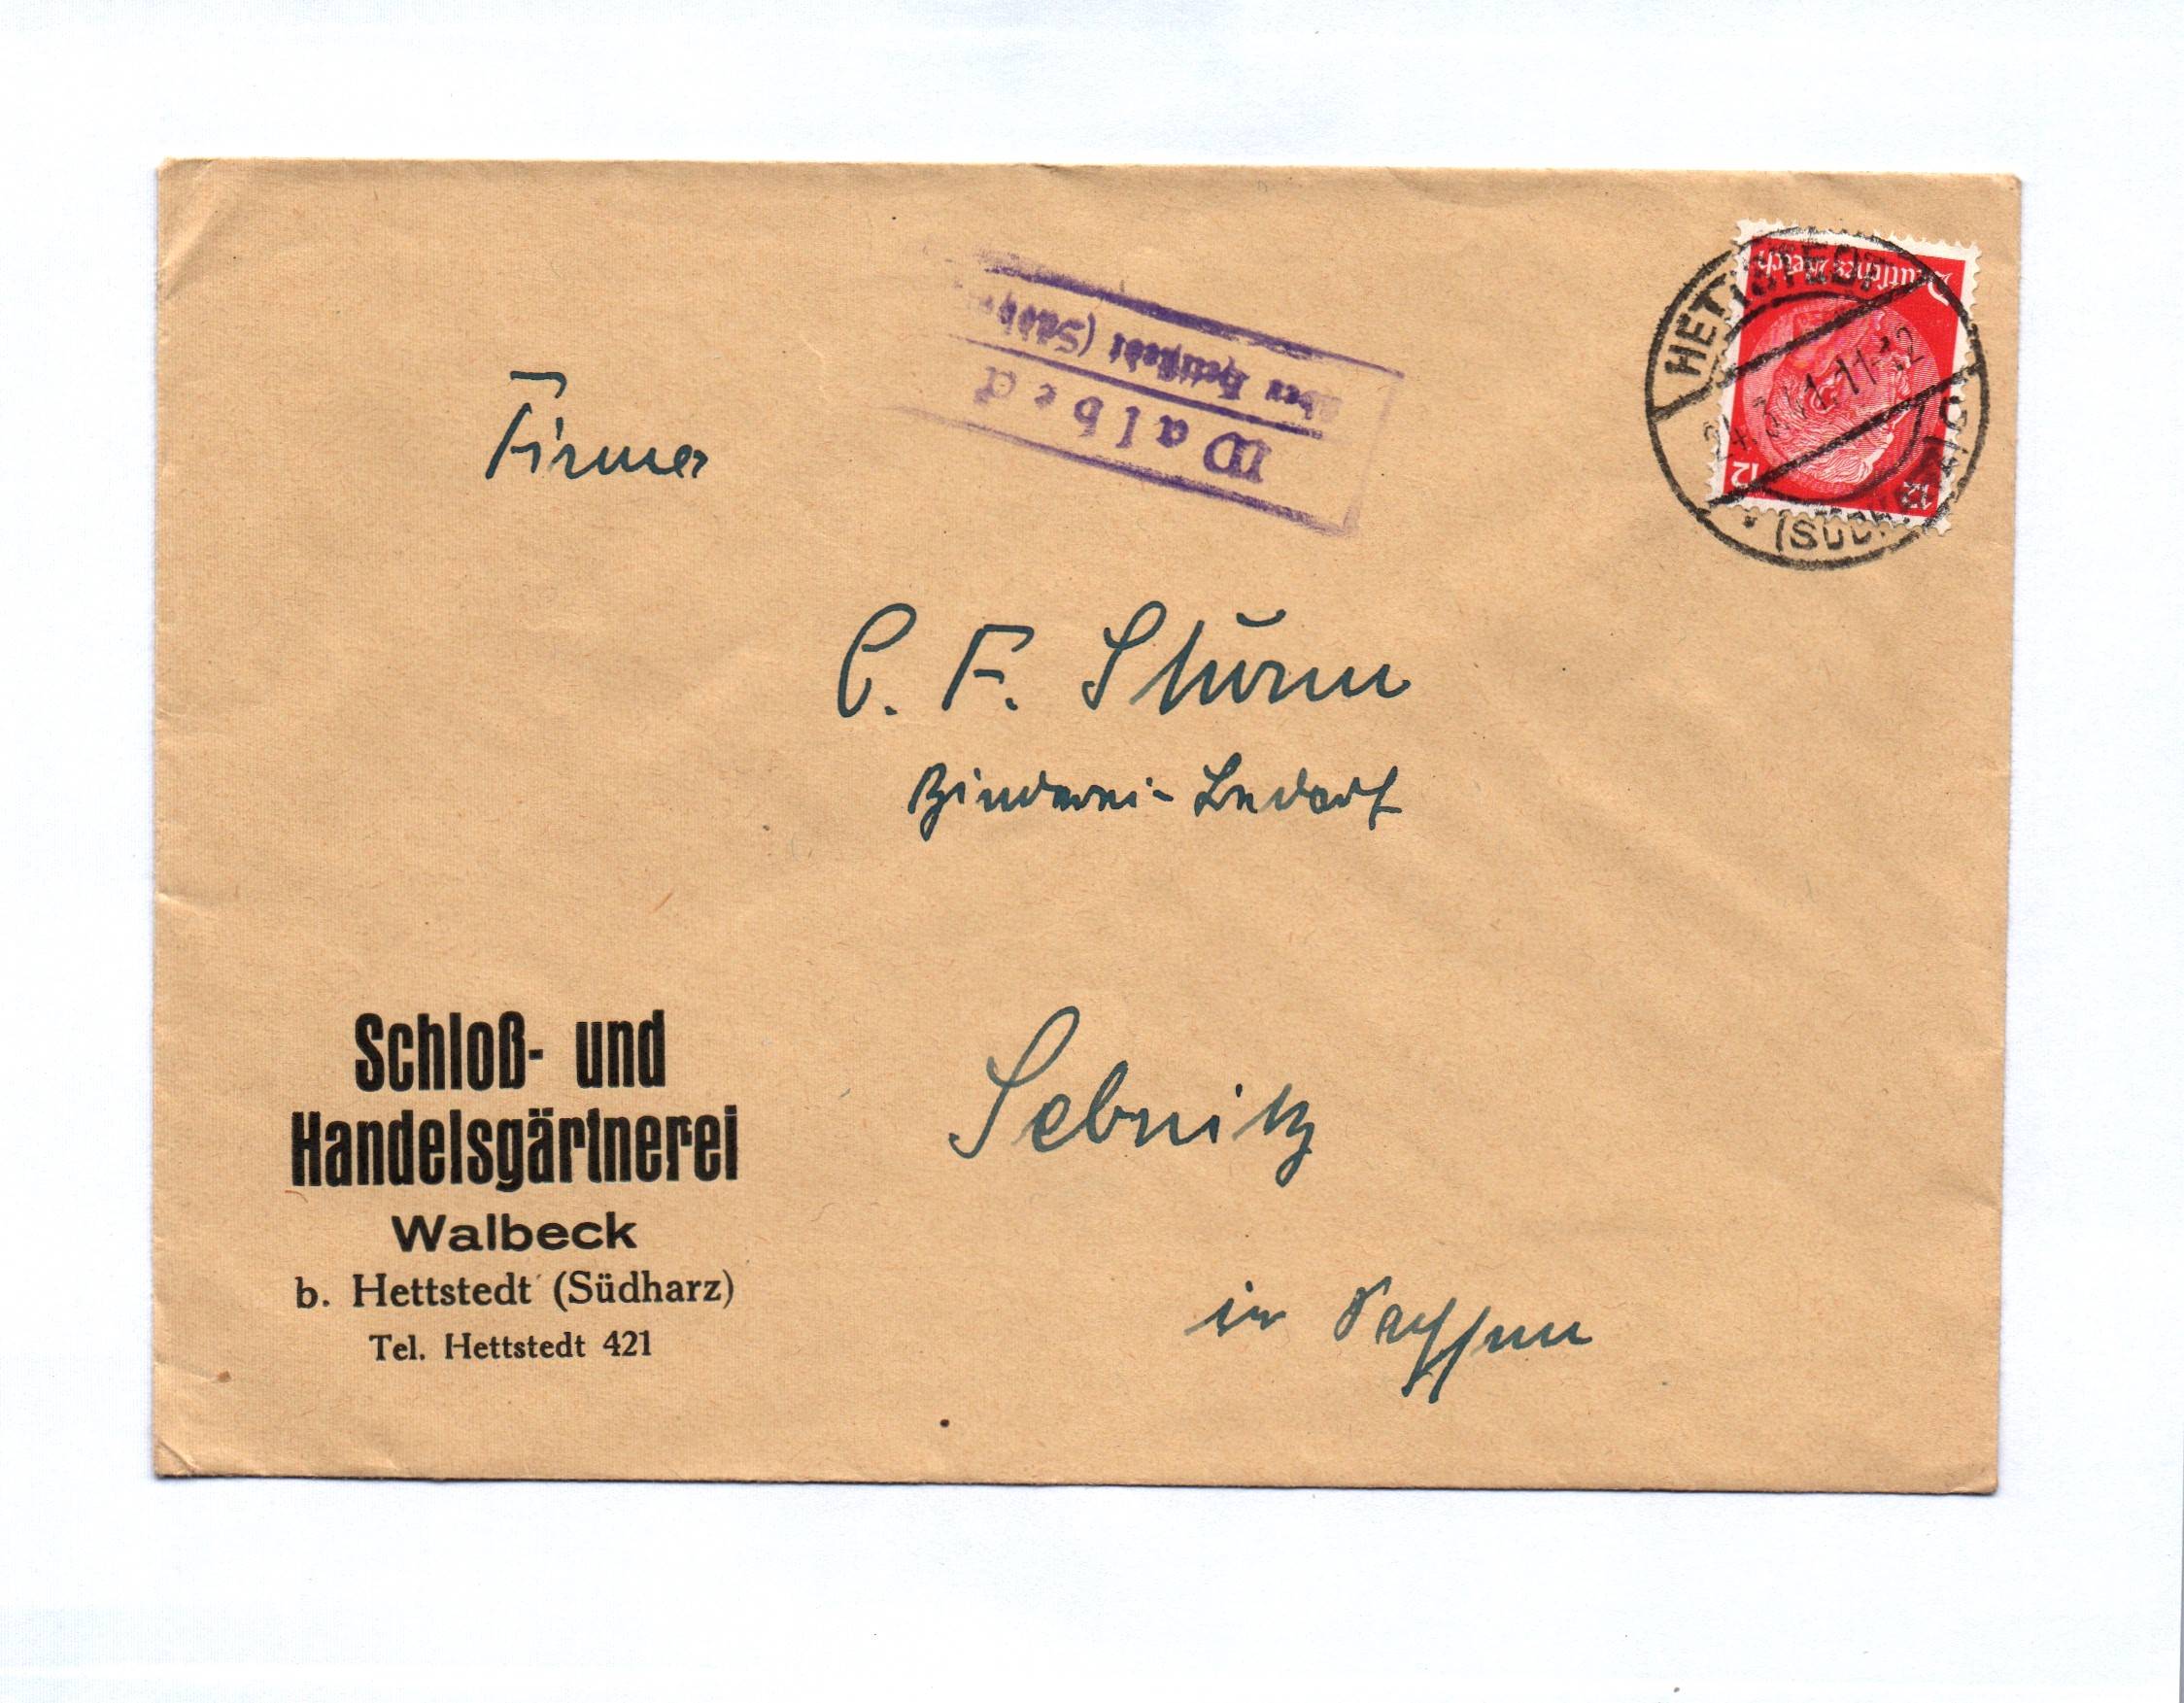 Walbeck
über Hettstedt (Südh
Deutsches Reich
12 12
HETTSTEDT
24.3.41.11-12
(SÜDHARZ)
Firma
C. F. Sturm
Binderei-Bedarf
Sebnitz
in Sachsen
Schloß- und
Handelsgärtnerei
Walbeck
b. Hettstedt (Südharz)
Tel. Hettstedt 421